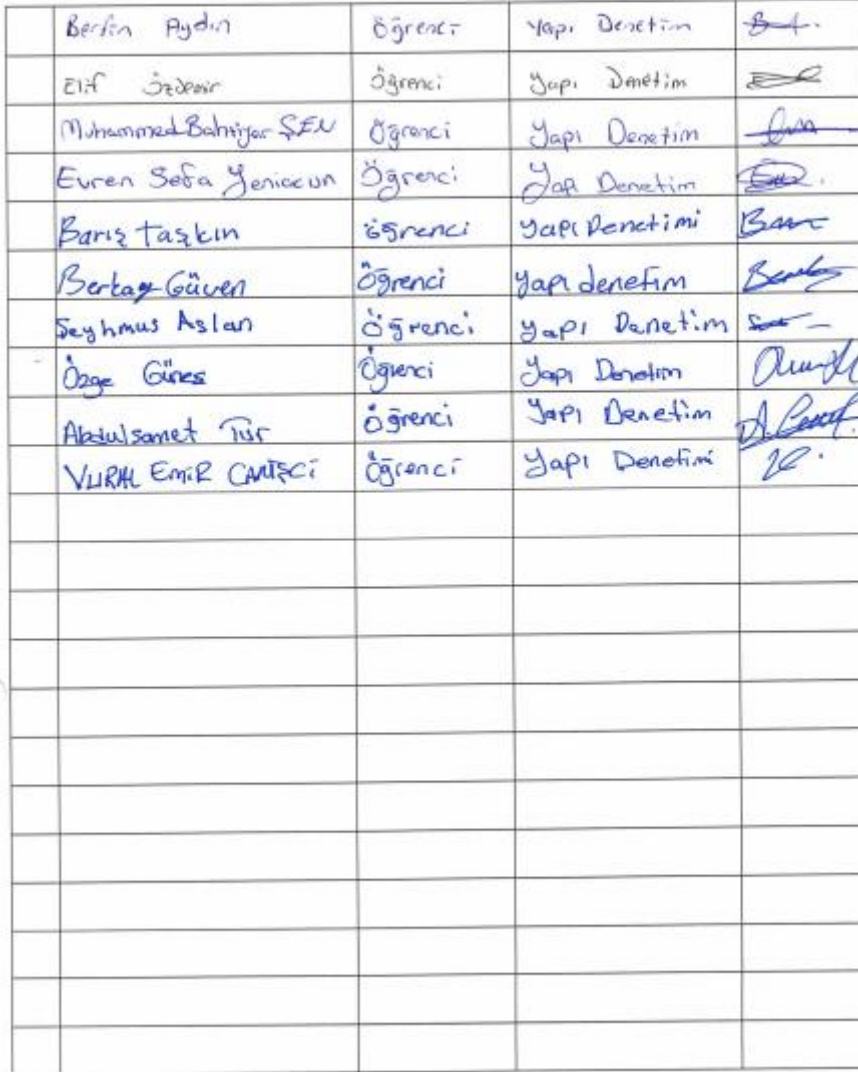 Berfin Aydın Öğrenci Yapı Denetim
Elif Özdemir Öğrenci Yapı Denetim
Muhammed Bahtiyar ŞEN Öğrenci Yapı Denetim
Evren Sefa Öğrenci Yapı Denetim
Barış Taşkın öğrenci Yapı Denetimi
Berkay Güven Öğrenci Yapı denetim
Şeyhmus Aslan Öğrenci Yapı Denetim
Özge Güneş Öğrenci Yapı Denetim
Abdulsamet Tür Öğrenci Yapı Denetim
VURAL EMİR Öğrenci Yapı Denetimi